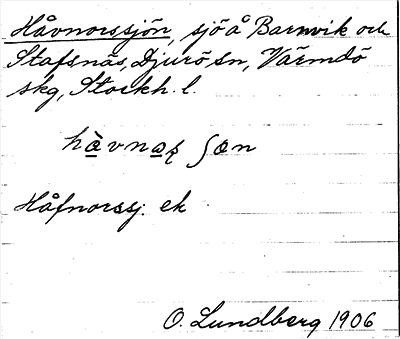 Håvnorssjön, sjö å Barnvik och
Stafsnäs, Djurö sn, Värmdö
skg, Stockh. l.
Håfnorssj. ek
O. Lundberg 1906